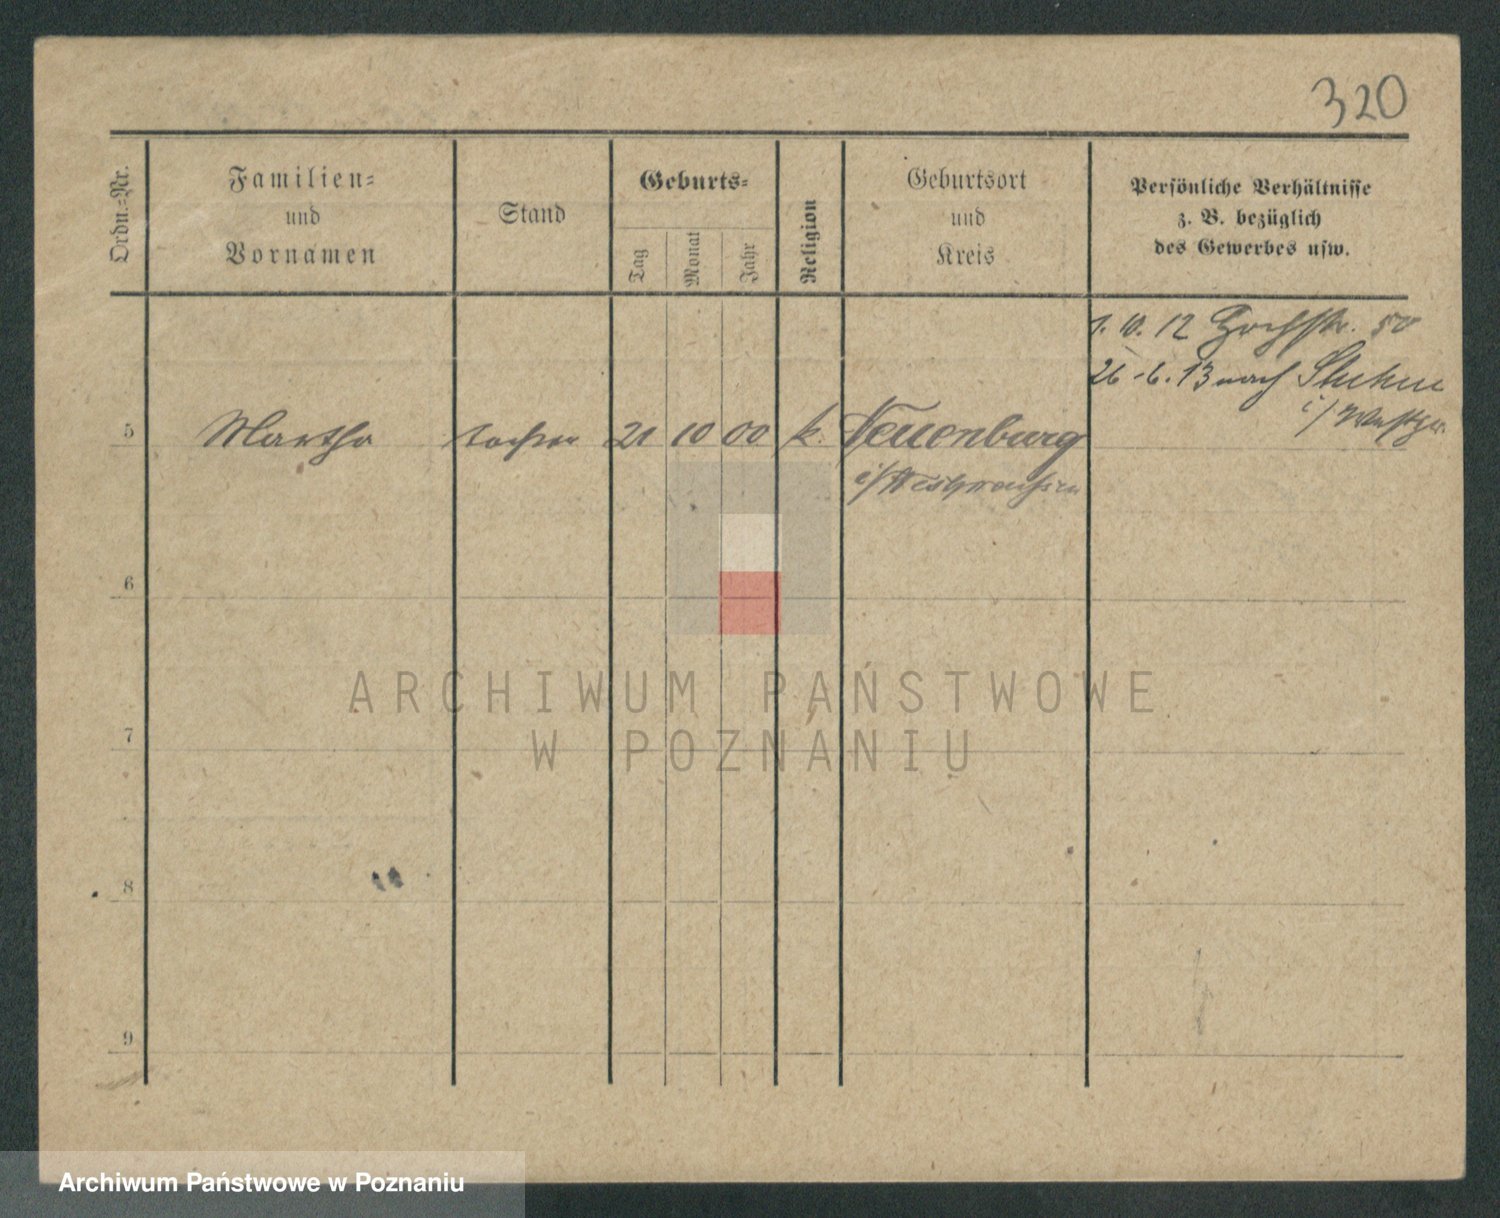 320
Ordn.-Nr.
Familien-
und
Vornamen
Stand
Geburts-
Tag
Monat
Jahr
Religion
Geburtsort
und
Kreis
Persönliche Verhältnisse
z. B. bezüglich
des Gewerbes usw.
1. 10. 12 Hochstr. 50
26.6.13 nach Stuhm
i/Westpr.
5 Martha Tochter 21 10 00 k. Neuenburg
i/Westpreußen
6
7
8
9
ARCHIWUM PAŃSTWOWE
W POZNANIU
Archiwum Państwowe w Poznaniu